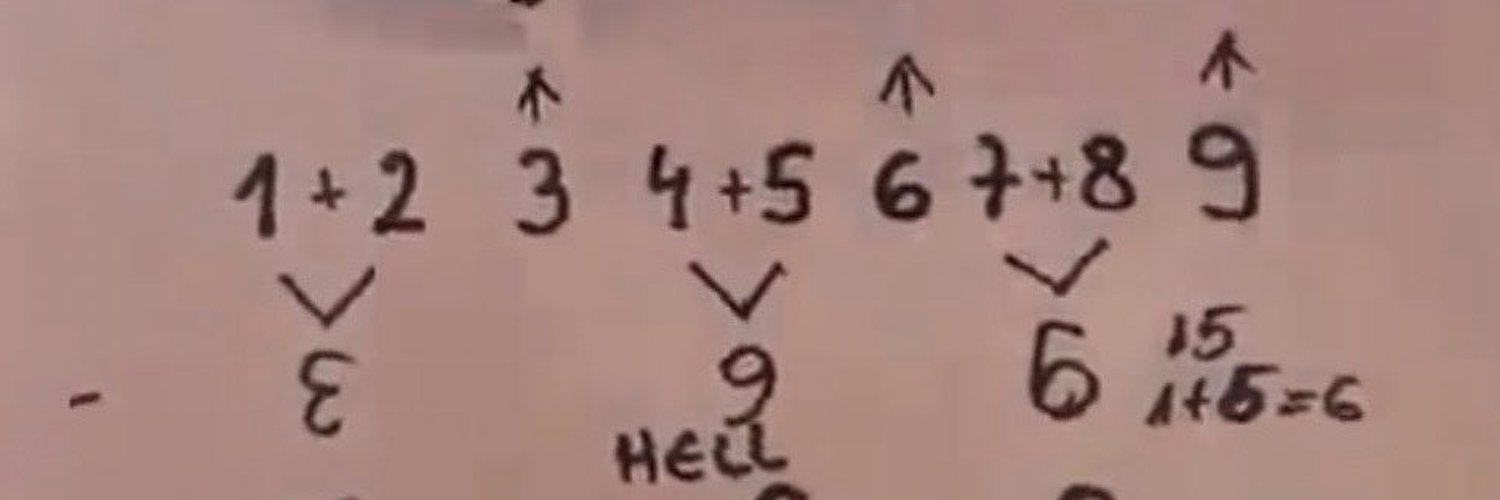 ↑ ↑ ↑
1+2 3 4+5 6 7+8 9
Ɛ 9 6 15
- 1+5=6
HELL